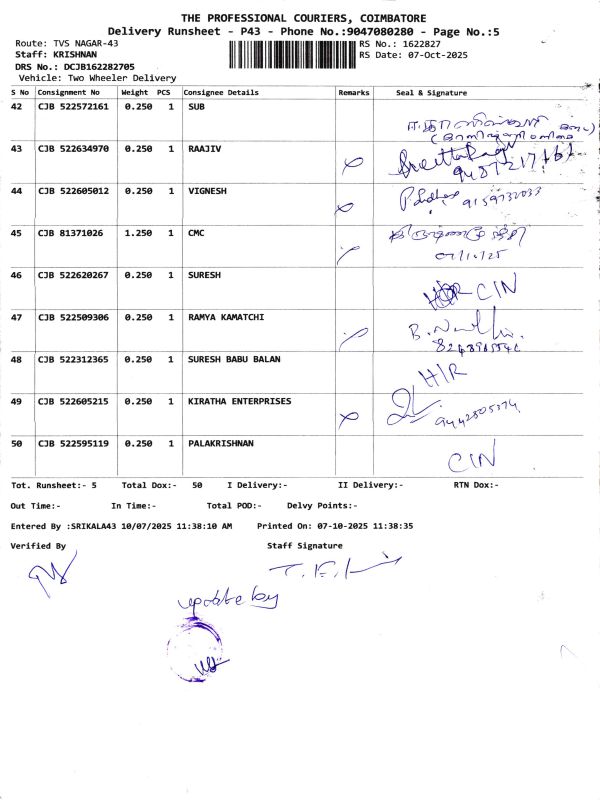 THE PROFESSIONAL COURIERS, COIMBATORE
Delivery Runsheet - P43 - Phone No.:9047080280 - Page No.:5
Route: TVS NAGAR-43 RS No.: 1622827
Staff: KRISHNAN RS Date: 07-Oct-2025
DRS No.: DCJB162282705
Vehicle: Two Wheeler Delivery
S No Consignment No Weight PCS Consignee Details Remarks Seal & Signature
42 CJB 522572161 0.250 1 SUB
43 CJB 522634970 0.250 1 RAAJIV
44 CJB 522605012 0.250 1 VIGNESH
9159732033
45 CJB 81371026 1.250 1 CMC
07/10/25
46 CJB 522620267 0.250 1 SURESH CIN
47 CJB 522509306 0.250 1 RAMYA KAMATCHI
48 CJB 522312365 0.250 1 SURESH BABU BALAN H/R
49 CJB 522605215 0.250 1 KIRATHA ENTERPRISES
50 CJB 522595119 0.250 1 PALAKRISHNAN CIN
Tot. Runsheet:- 5 Total Dox:- 50 I Delivery:- II Delivery:- RTN Dox:-
Out Time:- In Time:- Total POD:- Delvy Points:-
Entered By :SRIKALA43 10/07/2025 11:38:10 AM Printed On: 07-10-2025 11:38:35
Verified By Staff Signature
update by